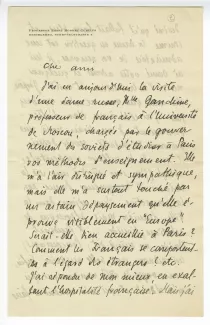 Cher ami
J'ai eu aujourd'hui la visite
d'une dame russe, Mlle
professeur de français à l'Université
de Moscou, chargée par le gouver-
nement des soviets d'étudier à Paris
vos méthodes d'enseignement. Elle
m'a l'air distinguée et sympathique,
mais elle m'a surtout touché par
un certain dépaysement qu'elle é-
prouve visiblement en "Europe".
Serait-elle bien accueillie à Paris?
Comment les Français se comportent-
ils à l'égard des étrangers? etc.
J'ai répondu de mon mieux en exal-
tant l'hospitalité française. Mais j'ai